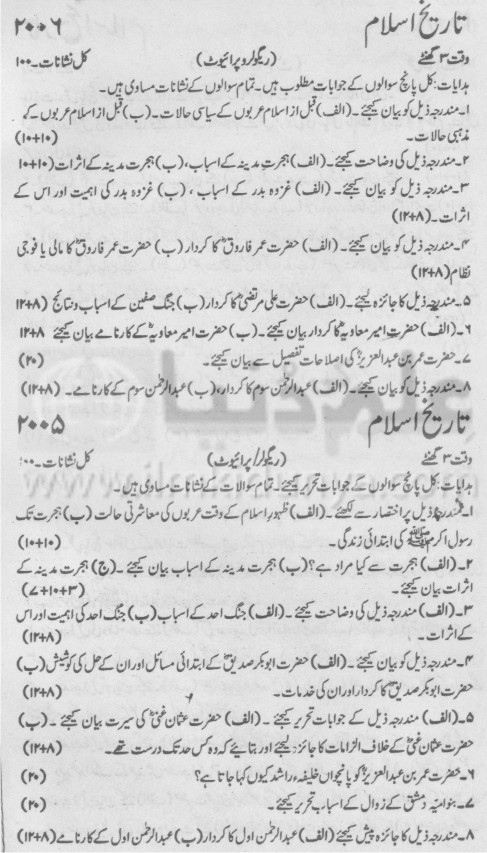 تاریخ اسلام ۲۰۰۶
وقت ۳ گھنٹے (ریگولر و پرائیوٹ) کل نشانات۔۱۰۰
ہدایات: کل پانچ سوالوں کے جوابات مطلوب ہیں۔ تمام سوالوں کے نشانات مساوی ہیں۔
۱۔ مندرجہ ذیل کو بیان کیجئے۔ (الف) قبل از اسلام عربوں کے سیاسی حالات۔ (ب) قبل از اسلام عربوں کے
مذہبی حالات۔ (۱۰+۱۰)
۲۔ مندرجہ ذیل کی وضاحت کیجئے۔ (الف) ہجرت مدینہ کے اسباب، (ب) ہجرت مدینہ کے اثرات (۱۰+۱۰)
۳۔ مندرجہ ذیل کو بیان کیجئے۔ (الف) غزوہ بدر کے اسباب ، (ب) غزوہ بدر کی اہمیت اور اس کے
اثرات۔ (۱۲+۸)
۴۔ مندرجہ ذیل کو بیان کیجئے۔ (الف) حضرت عمر فاروقؓ کا کردار (ب) حضرت عمر فاروقؓ کا مالی یا فوجی
نظام (۱۲+۸)
۵۔ مندرجہ ذیل کا جائزہ لیجئے۔ (الف) حضرت علی مرتضیٰؓ کا کردار (ب) جنگ صفین کے اسباب و نتائج (۱۲+۸)
۶۔ (الف) حضرت امیر معاویہؓ کا کردار بیان کیجئے۔ (ب) حضرت امیر معاویہؓ کے کارنامے بیان کیجئے ۱۲+۸
۷۔ حضرت عمر بن عبدالعزیزؒ کی اصلاحات تفصیل سے بیان کیجئے۔ (۲۰)
۸۔ مندرجہ ذیل کو بیان کیجئے۔ (الف) عبدالرحمٰن سوم کا کردار، (ب) عبدالرحمٰن سوم کے کارنامے۔ (۱۲+۸)
تاریخ اسلام ۲۰۰۵
وقت ۳ گھنٹے (ریگولر/ پرائیوٹ) کل نشانات۔۱۰۰
ہدایات: کل پانچ سوالوں کے جوابات تحریر کیجئے۔ تمام سوالات کے نشانات مساوی ہیں۔
۱۔ مندرجہ ذیل پر اختصار سے لکھئے۔ (الف) ظہور اسلام کے وقت عربوں کی معاشرتی حالت (ب) ہجرت تک
رسول اکرم ﷺ کی ابتدائی زندگی۔ (۱۰+۱۰)
۲۔ (الف) ہجرت سے کیا مراد ہے؟ (ب) ہجرت مدینہ کے اسباب بیان کیجئے۔ (ج) ہجرت مدینہ کے
اثرات بیان کیجئے۔ (۳+۱۰+۷)
۳۔ مندرجہ ذیل کی وضاحت کیجئے۔ (الف) جنگ احد کے اسباب (ب) جنگ احد کی اہمیت اور اس
کے اثرات۔ (۱۲+۸)
۴۔ مندرجہ ذیل کو بیان کیجئے۔ (الف) حضرت ابوبکر صدیقؓ کے ابتدائی مسائل اور ان کے حل کی کوشیش (ب)
حضرت ابوبکر صدیقؓ کا کردار اور ان کی خدمات۔ (۱۲+۸)
۵۔ مندرجہ ذیل کے جوابات تحریر کیجئے۔ (الف) حضرت عثمان غنیؓ کی سیرت بیان کیجئے۔ (ب)
حضرت عثمان غنیؓ کے خلاف الزامات کا جائزہ لیجئے اور بتایئے کہ وہ کس حد تک درست تھے۔ (۱۲+۸)
۶۔ حضرت عمر بن عبدالعزیزؒ کو پانچواں خلیفہ راشد کیوں کہا جاتا ہے؟ (۲۰)
۷۔ بنو امیہ دمشق کے زوال کے اسباب تحریر کیجئے۔ (۲۰)
۸۔ مندرجہ ذیل کا جائزہ پیش کیجئے (الف) عبدالرحمٰن اول کا کردار (ب) عبدالرحمٰن اول کے کارنامے (۱۲+۸)